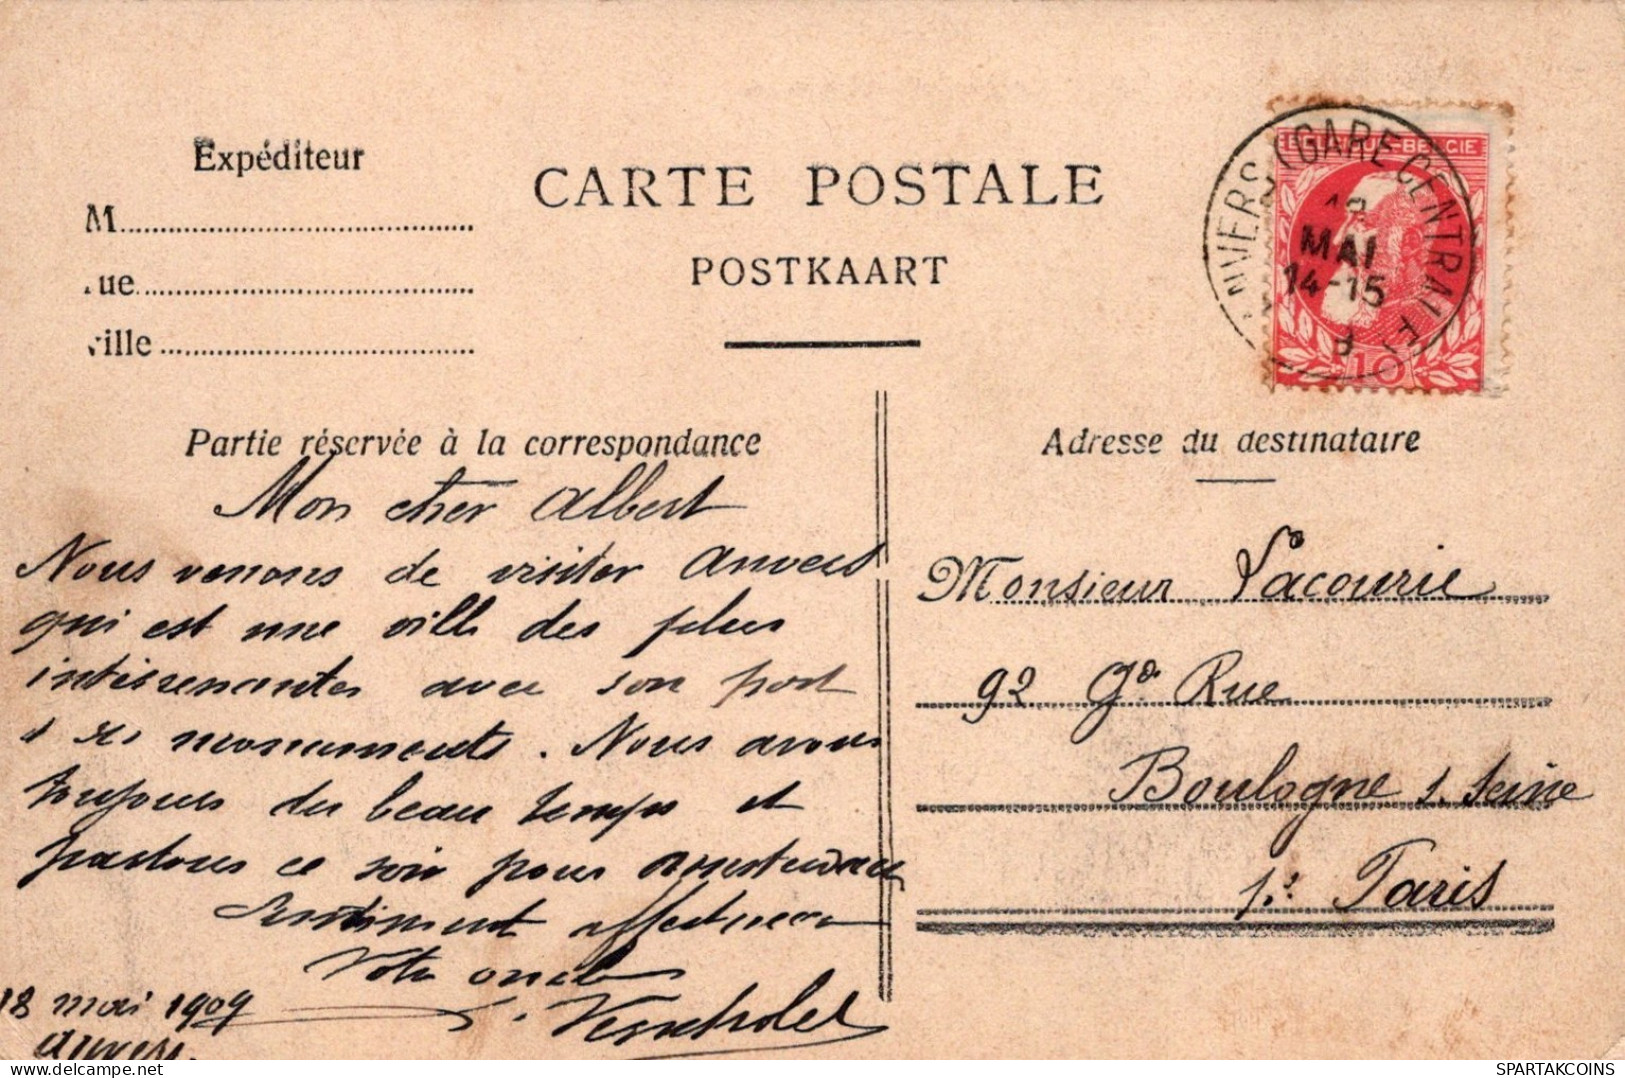 Expéditeur
M
ue
ville
CARTE POSTALE
POSTKAART
ANVERS (GARE CENTRALE)
BELGIQUE-BELGIE
MAI
14-15
10
Partie réservée à la correspondance
Adresse du destinataire
Mon cher Albert
Nous venons de visiter Anvers
qui est une ville des plus
intéressantes avec son port
et ses monuments. Nous avons
toujours du beau temps et
partons ce soir pour Amsterdam
Sentiment affectueux
Votre oncle
18 mai 1909
Anvers.
Monsieur Lacourie
92 Gde Rue
Boulogne s. Seine
Paris
SPARTAKCOINS